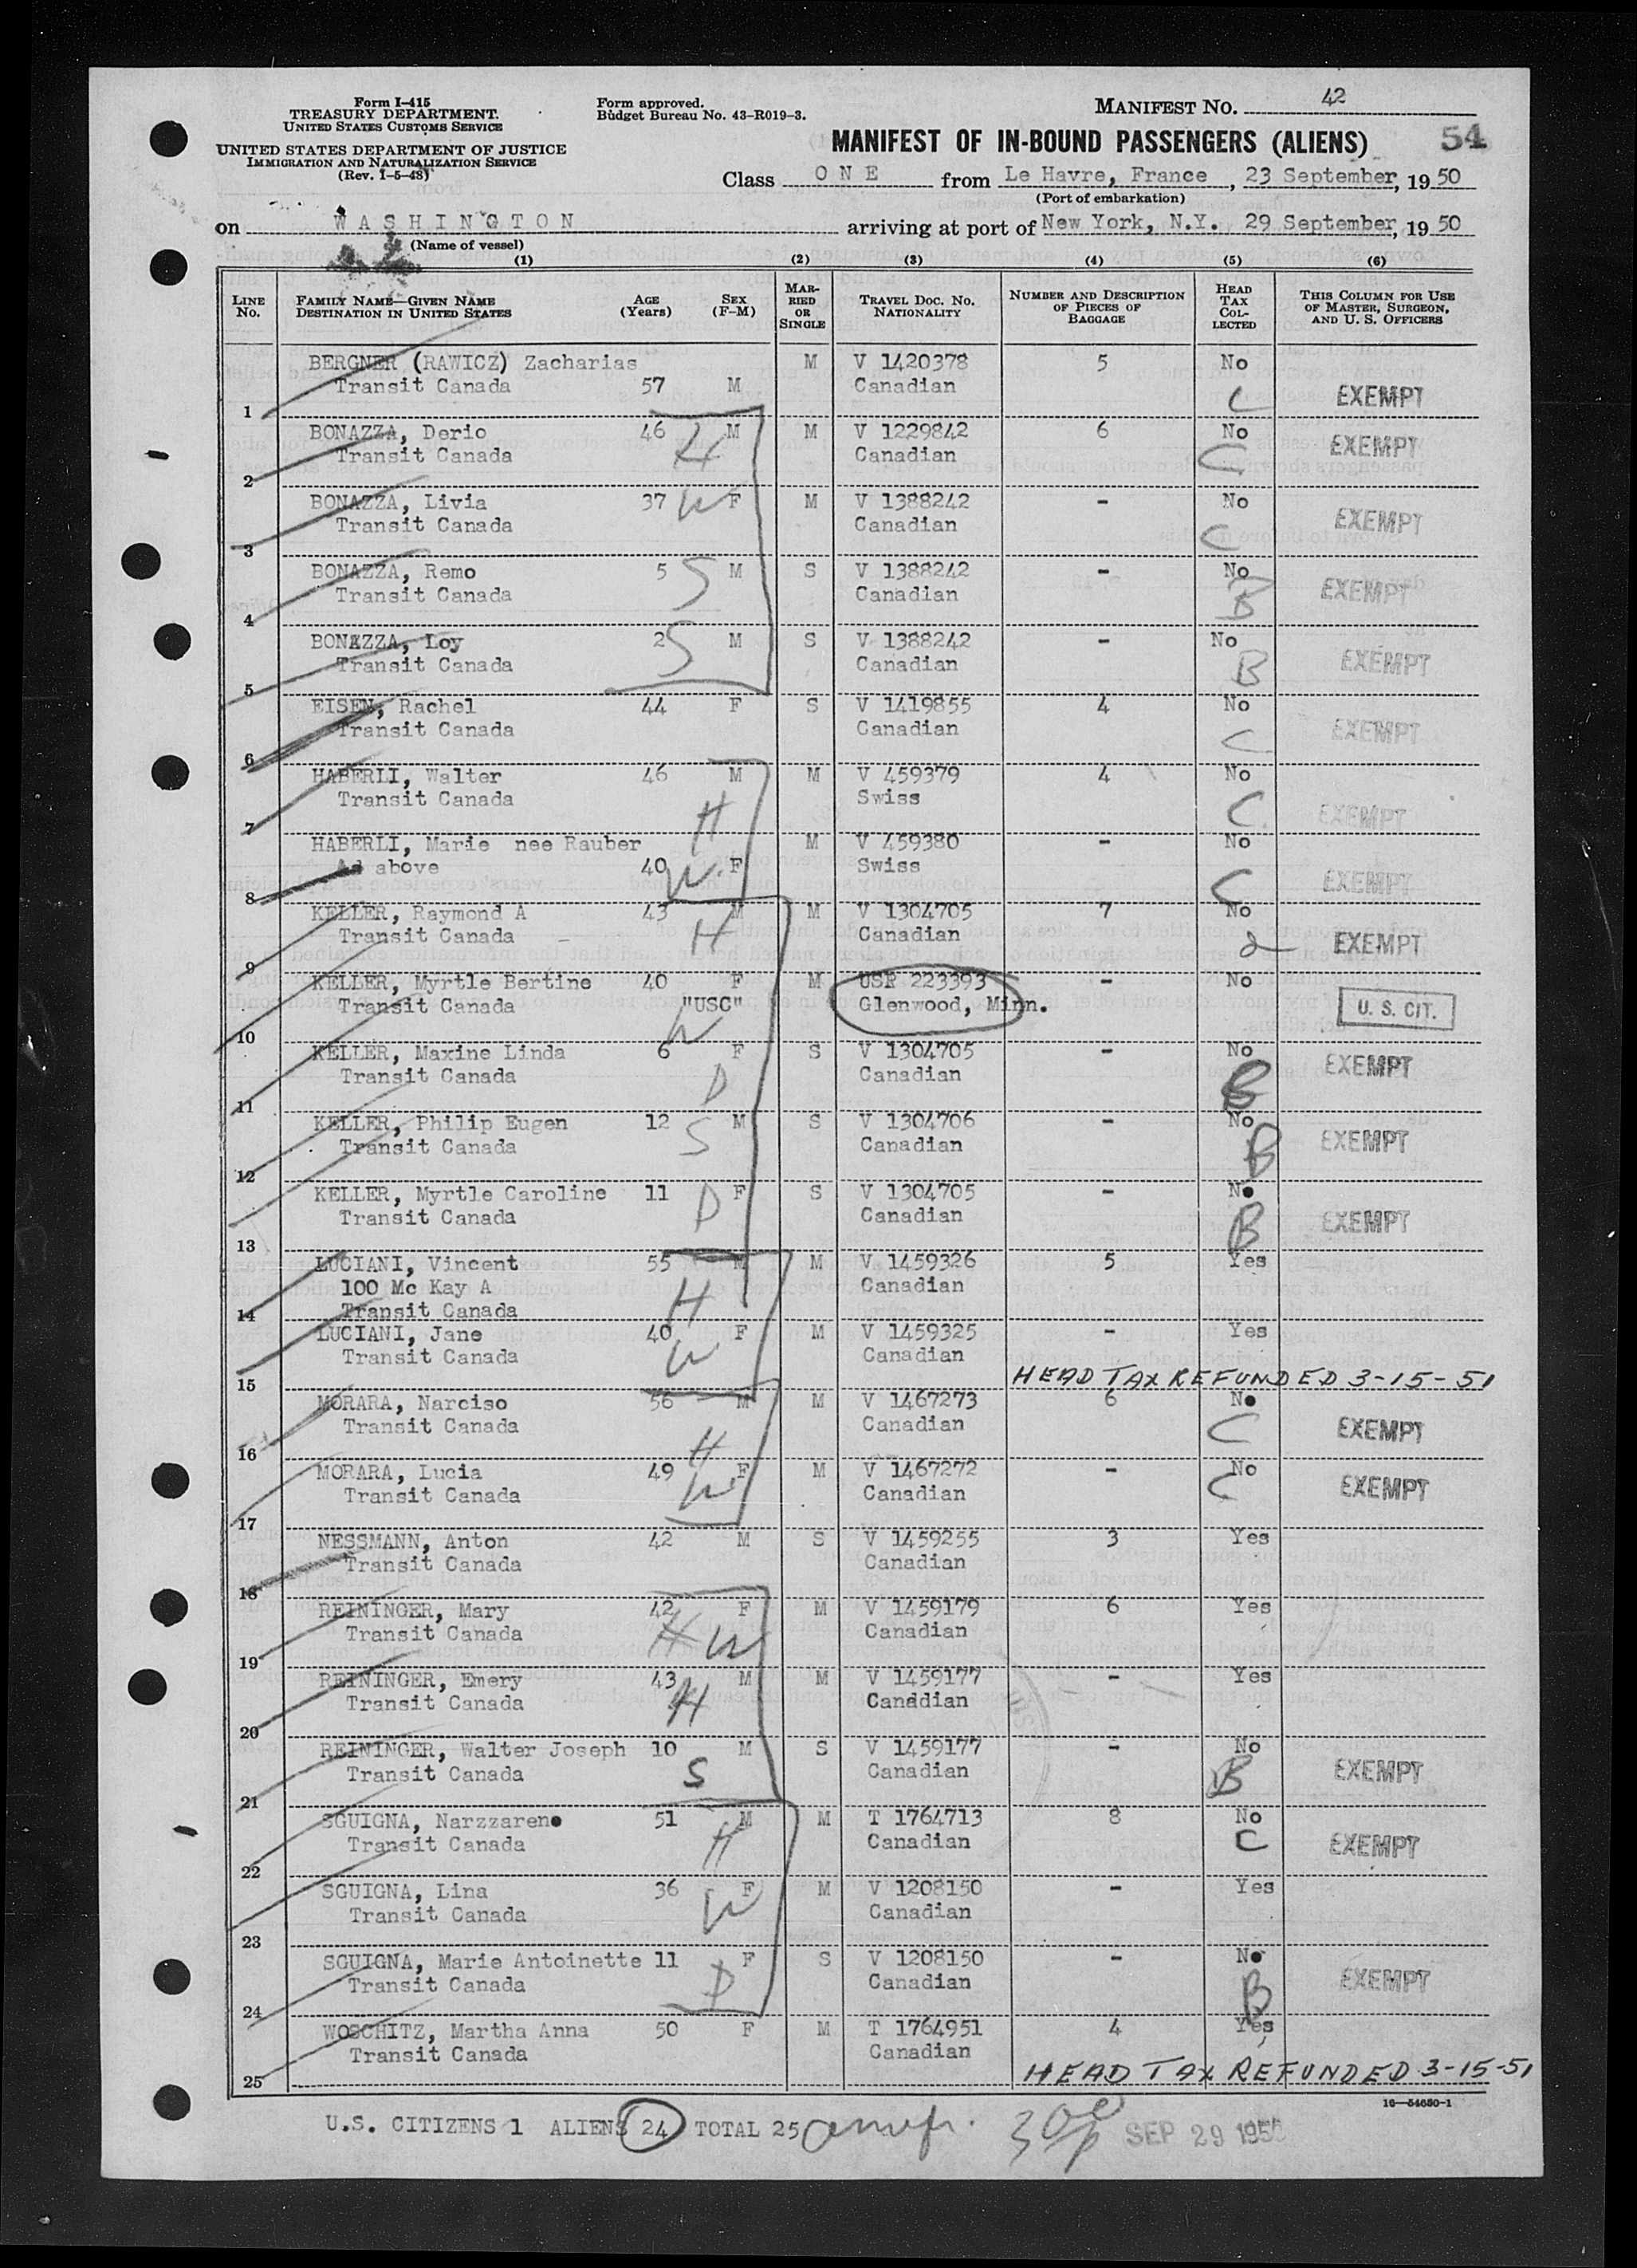 Form I-415
TREASURY DEPARTMENT.
UNITED STATES CUSTOMS SERVICE
UNITED STATES DEPARTMENT OF JUSTICE
IMMIGRATION AND NATURALIZATION SERVICE
(Rev. 1-5-48)
Form approved.
Budget Bureau No. 43-R019-3.
MANIFEST NO. 42
MANIFEST OF IN-BOUND PASSENGERS (ALIENS) 54
Class O N E from Le Havre, France, 23 September, 1950
(Port of embarkation)
on W A S H I N G T O N arriving at port of New York, N.Y. 29 September, 1950
(Name of vessel)
(1) (2) (3) (4) (5) (6)
LINE No. FAMILY NAME—GIVEN NAME DESTINATION IN UNITED STATES AGE (Years) SEX (F-M) MARRIED OR SINGLE TRAVEL DOC. NO. NATIONALITY NUMBER AND DESCRIPTION OF PIECES OF BAGGAGE HEAD TAX COLLECTED THIS COLUMN FOR USE OF MASTER, SURGEON, AND U. S. OFFICERS
BERGNER (RAWICZ) Zacharias M V 1420378 5 No
Transit Canada 57 M Canadian C EXEMPT
1
BONAZZA, Derio 46 M M V 1229842 6 No
Transit Canada H Canadian C EXEMPT
2
BONAZZA, Livia 37 W F M V 1388242 - No
Transit Canada Canadian C EXEMPT
3
BONAZZA, Remo 5 S M S V 1388242 - No
Transit Canada Canadian B EXEMPT
4
BONAZZA, Loy 2 S M S V 1388242 - No
Transit Canada Canadian B EXEMPT
5
EISEN, Rachel 44 F S V 1419855 4 No
Transit Canada Canadian C EXEMPT
6
HABERLI, Walter 46 M M V 459379 4 No
Transit Canada H Swiss C EXEMPT
7
HABERLI, Marie nee Rauber M V 459380 - No
As above 40 W F Swiss C EXEMPT
8
KELLER, Raymond A 43 M M V 1304705 7 No
Transit Canada H Canadian EXEMPT
9
KELLER, Myrtle Bertine 40 F M USR 223393 - No
Transit Canada "USC" W Glenwood, Minn. U. S. CIT.
10
KELLER, Maxine Linda 6 F S V 1304705 - No
Transit Canada D Canadian B EXEMPT
11
KELLER, Philip Eugen 12 M S V 1304706 - No
Transit Canada S Canadian B EXEMPT
12
KELLER, Myrtle Caroline 11 F S V 1304705 - No
Transit Canada D Canadian B EXEMPT
13
LUCIANI, Vincent 55 M M V 1459326 5 Yes
100 Mc Kay A Canadian
Transit Canada H
14
LUCIANI, Jane 40 F M V 1459325 - Yes
Transit Canada W Canadian
HEAD TAX REFUNDED 3-15-51
15
MORARA, Narciso 56 M M V 1467273 6 No
Transit Canada H Canadian C EXEMPT
16
MORARA, Lucia 49 F M V 1467272 - No
Transit Canada W Canadian C EXEMPT
17
NESSMANN, Anton 42 M S V 1459255 3 Yes
Transit Canada Canadian
18
REININGER, Mary 42 F M V 1459179 6 Yes
Transit Canada H W Canadian
19
REININGER, Emery 43 M M V 1459177 - Yes
Transit Canada H Canadian
20
REININGER, Walter Joseph 10 M S V 1459177 - No
Transit Canada S Canadian B EXEMPT
21
SGUIGNA, Narzzareno 51 M M T 1764713 8 No
Transit Canada H Canadian C EXEMPT
22
SGUIGNA, Lina 36 F M V 1208150 - Yes
Transit Canada W Canadian
23
SGUIGNA, Marie Antoinette 11 F S V 1208150 - No
Transit Canada D Canadian B EXEMPT
24
WOSCHITZ, Martha Anna 50 F M T 1764951 4 Yes
Transit Canada Canadian
HEAD TAX REFUNDED 3-15-51
25
16—54650-1
U.S. CITIZENS 1 ALIENS 24 TOTAL 25 SEP 29 1950